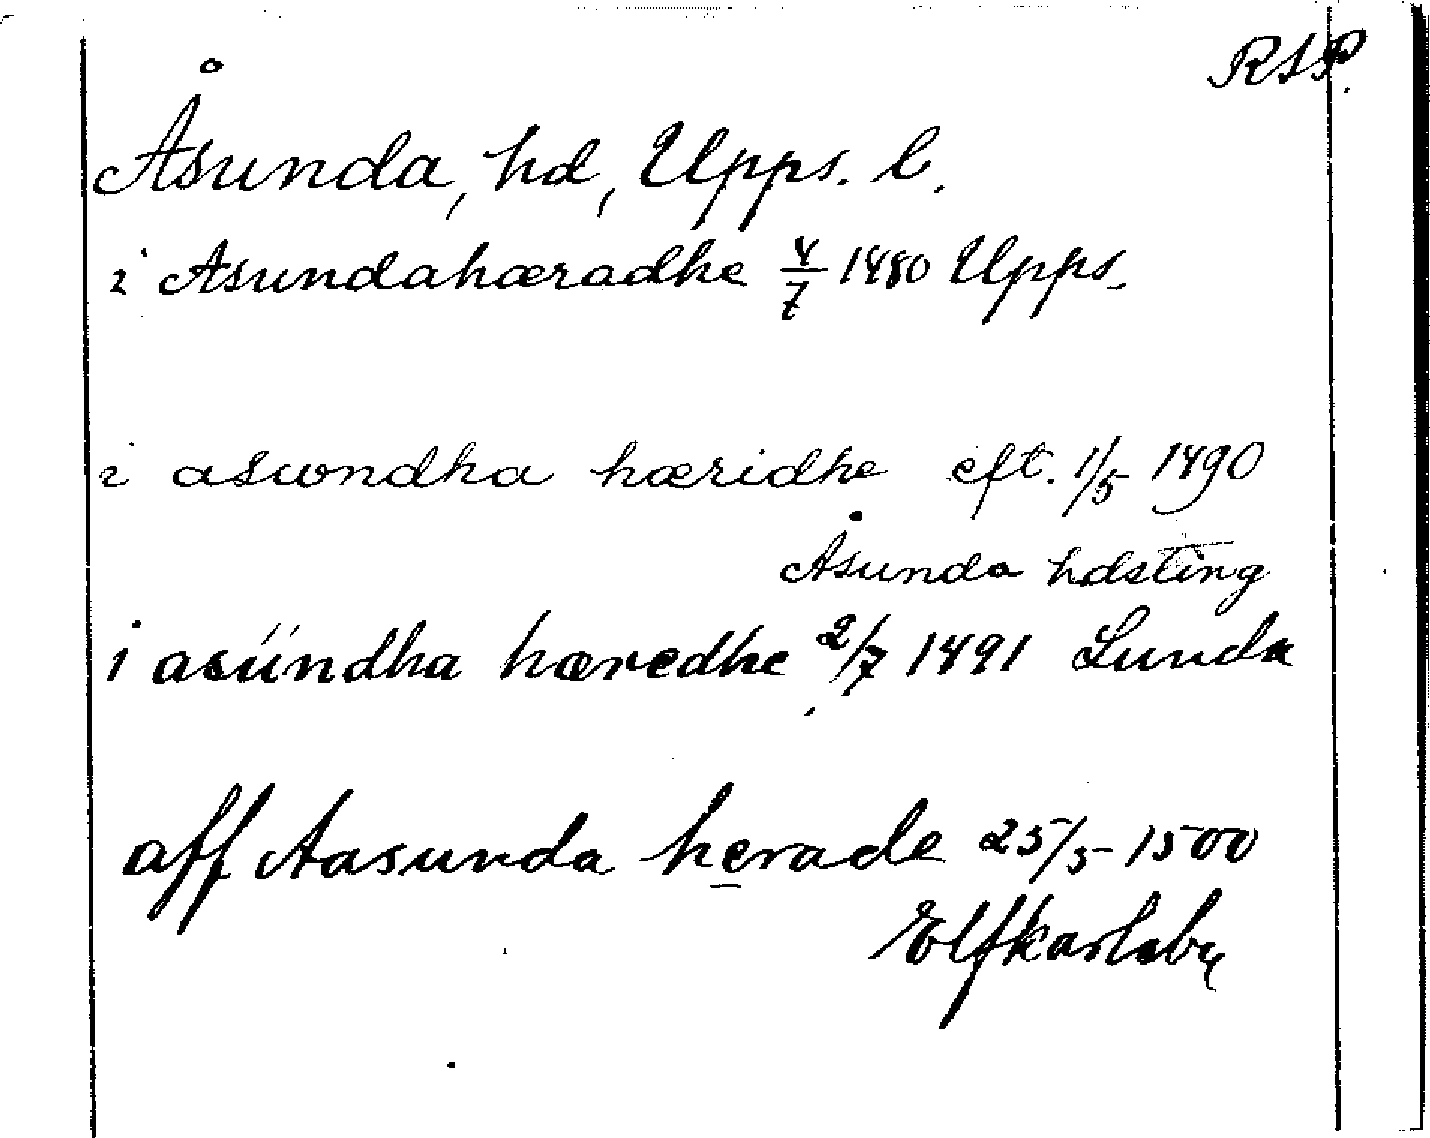 RAP.
Åsunda, hd, Upps. l.
i Asundahæradhe 4/7 1480 Upps.
i aswndha hæridhe eft. 1/5 1490
Åsunda hdsting
i asúndha hæredhe 2/7 1491 Lunda
aff Aasunda herade 25/5 1500
Elfkarleby